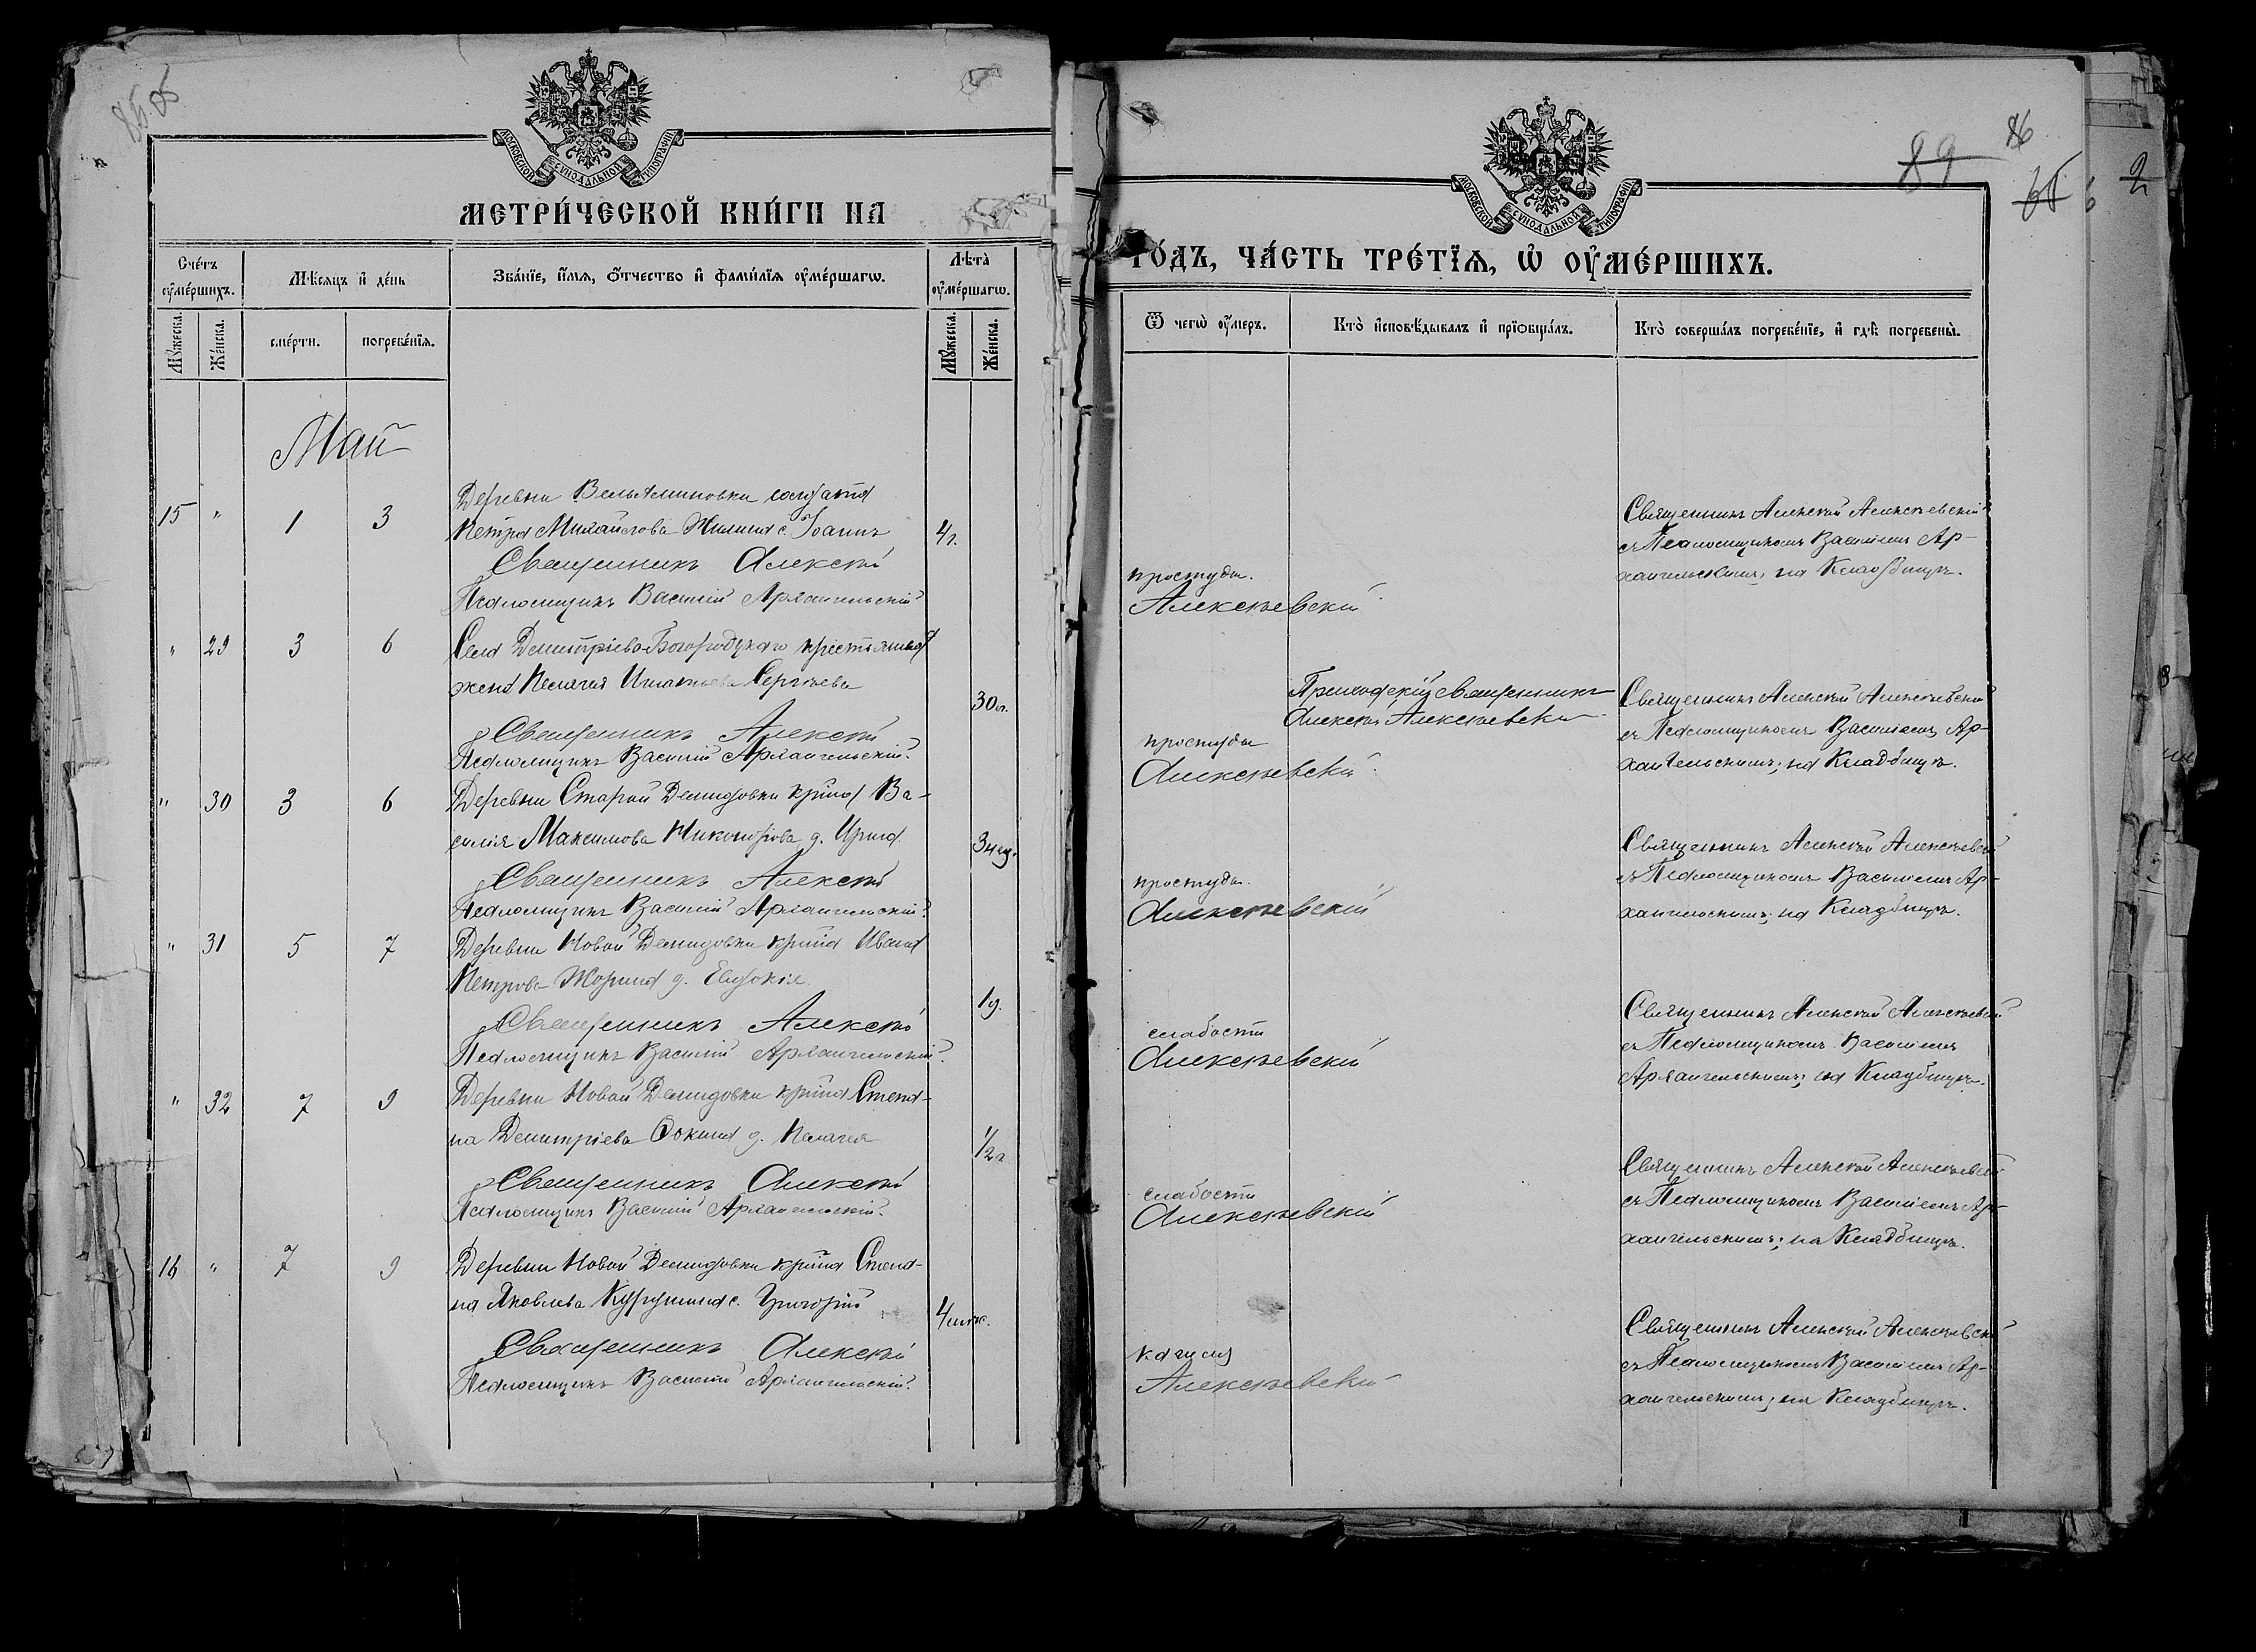 85об
МОСКОВСКОЙ СѴНОДАЛЬНОЙ ТИПОГРАФІИ
МЕТРИ́ЧЕСКОЙ КНИ́ГИ НА
Сче́тъ ᲂу҆ме́ршихъ.
Мѣ́сяцъ и҆ де́нь
Зва́нїе, и҆́мя, ѻ҆́тчество и҆ фами́лїя ᲂу҆ме́ршагѡ.
Лѣта̀ ᲂу҆ме́ршагѡ.
Мꙋ́жеска.
Же́нска.
сме́рти.
погребе́нїя.
Мꙋ́жеска.
Же́нска.
Май
15 " 1 3 Деревни Вельяминовки солдата
Петра Михайлова Жилина с. Іоаннъ 4г.
Священникъ Алексѣй
Псаломщикъ Василій Архангельскій
" 29 3 6 Села Димитріева-Богородскаго крестьянина
жена Пелагея Игнатьева Сергѣева 30л.
Священникъ Алексѣй
Псаломщикъ Василій Архангельскій.
" 30 3 6 Деревни Старой Демидовки кр-на Ва-
силія Максимова Никонорова д. Ирина 3
Священникъ Алексѣй
Псаломщикъ Василій Архангельскій.
" 31 5 7 Деревни Новой Демидовки кр-на Ивана
Петрова Жорина д. Евдокія 1г.
Священникъ Алексѣй
Псаломщикъ Василій Архангельскій.
" 32 7 9 Деревни Новой Демидовки кр-на Степа-
на Димитріева Фокина д. Пелагея 1/2г
Священникъ Алексѣй
Псаломщикъ Василій Архангельскій.
16 " 7 9 Деревни Новой Демидовки кр-на Степа-
на Яковлева с. Григорій 4
Священникъ Алексѣй
Псаломщикъ Василій Архангельскій.
89 86
МОСКОВСКОЙ СѴНОДАЛЬНОЙ ТИПОГРАФІИ
ГО́ДЪ, ЧА́СТЬ ТРЕ́ТЇѦ, Ѡ҆ ОУ҆МЕ́РШИХЪ.
Ѿ чегѡ̀ ᲂу҆́меръ.
Кто̀ и҆сповѣ́дывалъ и҆ прїѡбща́лъ.
Кто̀ соверша́лъ погребе́нїе, и҆ гдѣ̀ погребены̀.
Священникъ Алексѣй Алексѣевскій
съ Псаломщикомъ Василіемъ Ар-
хангельскимъ, на Кладбищѣ.
простуды.
Алексѣевскій
Приходскій священникъ
Алексѣй Алексѣевскій
Священникъ Алексѣй Алексѣевскій
съ Псаломщикомъ Василіемъ Ар-
хангельскимъ; на Кладбищѣ.
простуды
Алексѣевскій
Священникъ Алексѣй Алексѣевскій
съ Псаломщикомъ Василіемъ Ар-
хангельскимъ; на Кладбищѣ.
простуды.
Алексѣевскій
Священникъ Алексѣй Алексѣевскій
съ Псаломщикомъ Василіемъ
Архангельскимъ; на Кладбищѣ.
слабости
Алексѣевскій
Священникъ Алексѣй Алексѣевскій
съ Псаломщикомъ Василіемъ Ар-
хангельскимъ; на Кладбищѣ.
слабости
Алексѣевскій
Священникъ Алексѣй Алексѣевскій
съ Псаломщикомъ Василіемъ Ар-
хангельскимъ; на Кладбищѣ.
кашля
Алексѣевскій